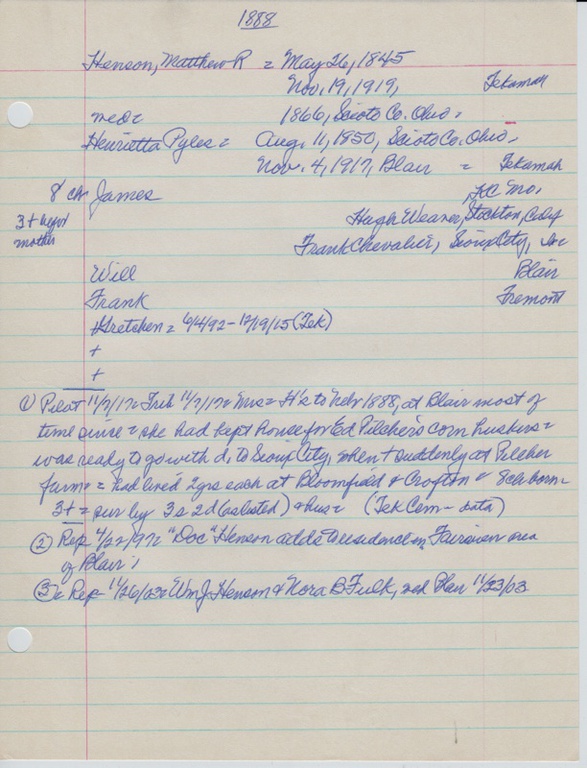 1888
Henson, Matthew R = May 26, 1845
Nov. 19, 1919, Tekamah
med = 1866, Scioto Co. Ohio =
Henrietta Pyles = Aug. 11, 1850, Scioto Co. Ohio =
Nov. 4, 1917, Blair = Tekamah
8 ch James , KC Mo.
3 + before mother
Hugh Weaver, Stockton, Calif
Frank Chevalier, Sioux City, Ia
Will Blair
Frank Fremont
+ Gretchen = 6/4/92 - 12/19/15 (Tek)
+
+
① Pilot 11/7/17 = Trib 11/7/17 = Mrs = H's to Nebr 1888, at Blair most of
time since = she had kept house for Ed Pilcher's corn huskers =
was ready to go with d, to Sioux City, when + suddenly at Pilcher
farm = had lived 2 yrs each at Bloomfield & Crofton = 8 ch born =
3 + = sur by 3 s 2 d (as listed) & hus = (Tek Cem - data)
② Rep 4/22/97 = "Doc" Henson adds to residence on Fairview area
of Blair =
③ = Rep 11/26/03 = Wm J Henson & Nora B Fulk, md Blair 11/23/03